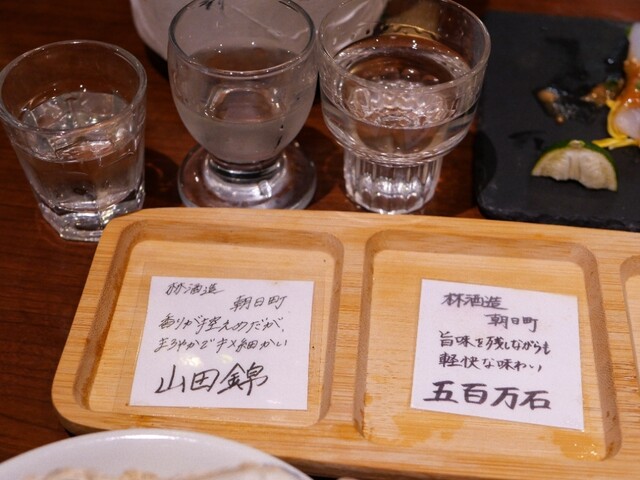 林酒造
朝日町
香りが控えめだが、
まろやかでキメ細かい
山田錦
林酒造
朝日町
旨味を残しながらも
軽快な味わい
五百万石